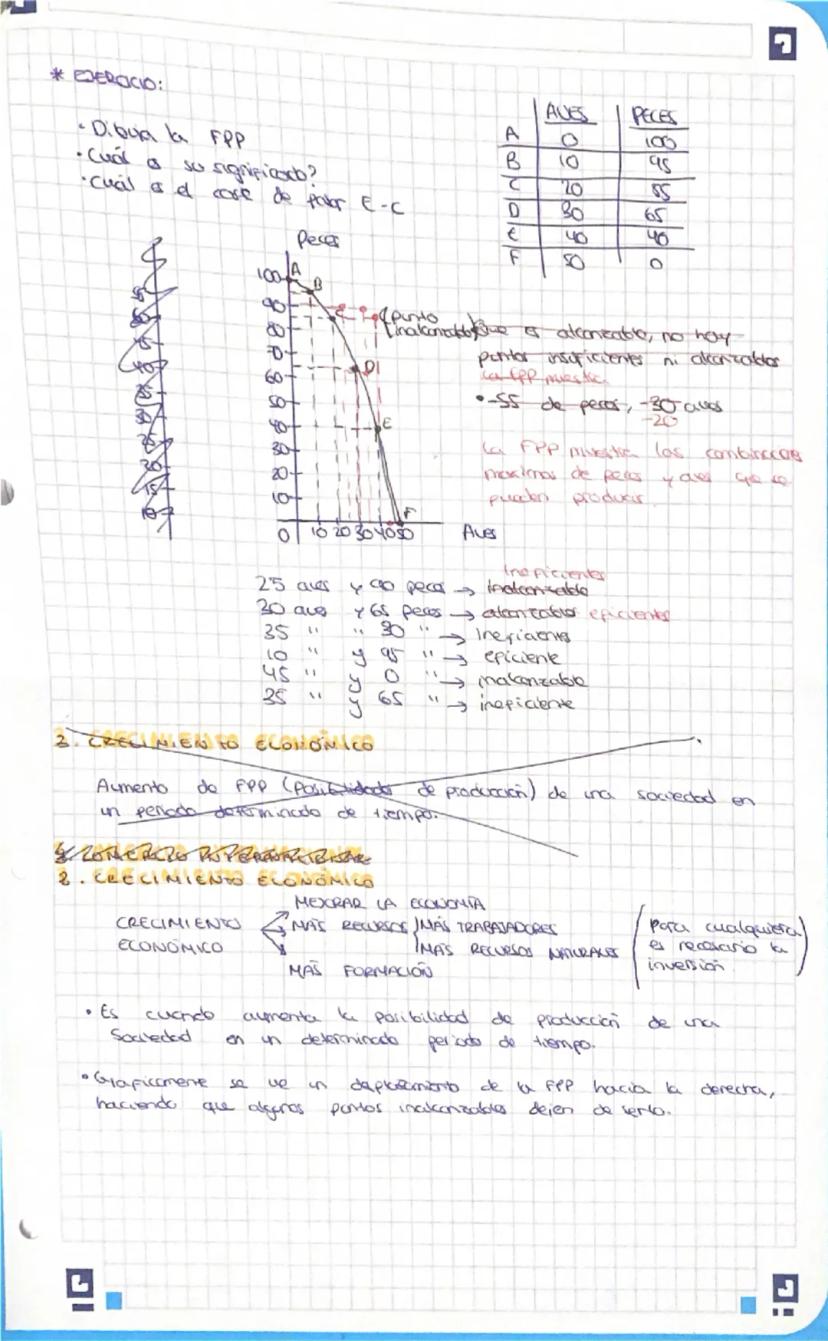 * EJERCICIO:
· Dibuja la FPP
· Cuál es su significado?
· Cuál es el coste de pasar E-C
AVES PECES
A 0 100
B 10 95
C 20 85
D 30 65
E 40 40
F 50 0
Peces
100 A
B
90
80
70
D
60
50
40 E
30
20
10
F
0 10 20 30 40 50 Aves
punto
inalcanzable
que es alcanzable, no hay
puntos insuficientes ni alcanzables
La FPP muestra
• -55 de peces, -30 aves
-20
La FPP muestra las combinaciones
máximas de peces y aves que se
pueden producir
ineficientes
25 aves y 90 peces → inalcanzable
30 aves y 65 peces → alcanzables eficientes
35 " " 30 " → Ineficientes
10 " y 95 " → eficiente
45 " y 0 " → inalcanzable
35 " y 65 " → ineficiente
3. CRECIMIENTO ECONÓMICO
Aumento de FPP (Posibilidades de producción) de una sociedad en
un periodo determinado de tiempo.
2. CRECIMIENTO ECONÓMICO
MEJORAR LA ECONOMÍA
CRECIMIENTO MÁS RECURSOS MÁS TRABAJADORES
ECONÓMICO MÁS RECURSOS NATURALES
MÁS FORMACIÓN
Para cualquiera
es necesario la
inversión
• Es cuando aumenta la posibilidad de producción de una
Sociedad en un determinado periodo de tiempo.
• Graficamente se ve un desplazamiento de la FPP hacia la derecha,
haciendo que algunos puntos inalcanzables dejen de serlo.